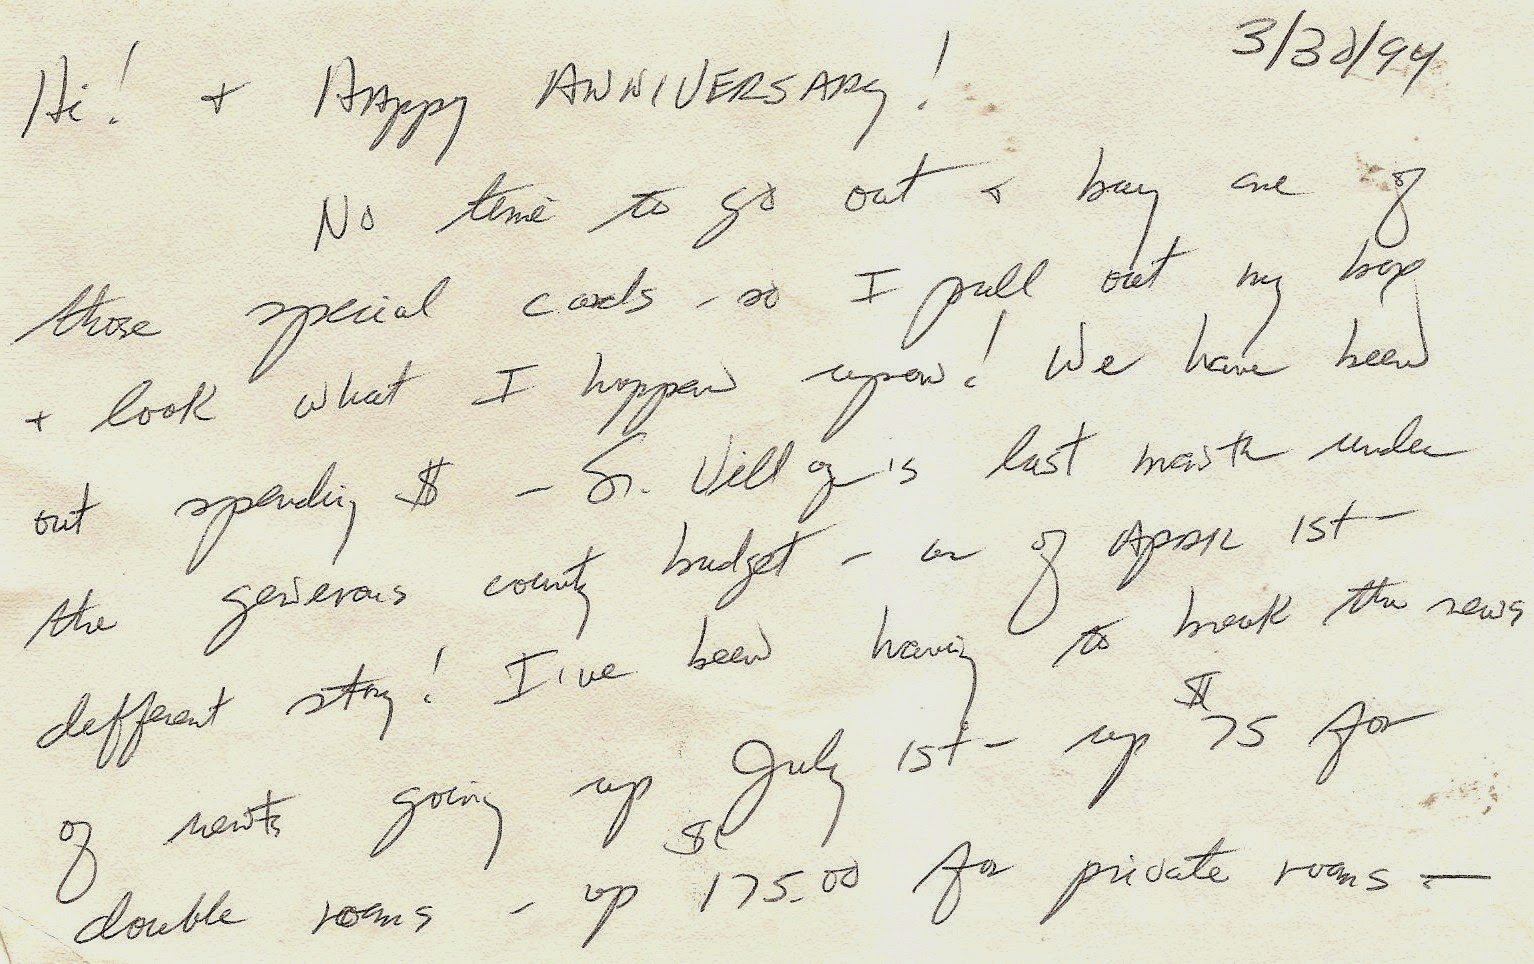 3/30/94
Hi! + Happy ANNIVERSARy!
No time to go out + buy one of
those special cards - so I pull out my box
+ look what I happen upon! We have been
out spending $ - Sr. Village's last month under
the generous county budget - as of April 1st -
different story! I've been having to break the news
of rents going up July 1st - up $75 for
double rooms - up $175.00 for private rooms -